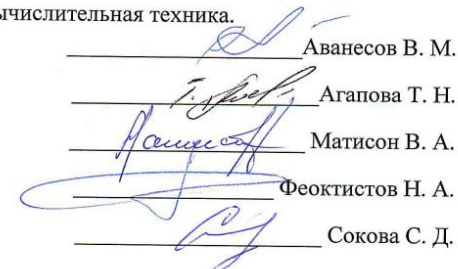 ычислительная техника.
Аванесов В. М.
Агапова Т. Н.
Матисон В. А.
Феоктистов Н. А.
Сокова С. Д.